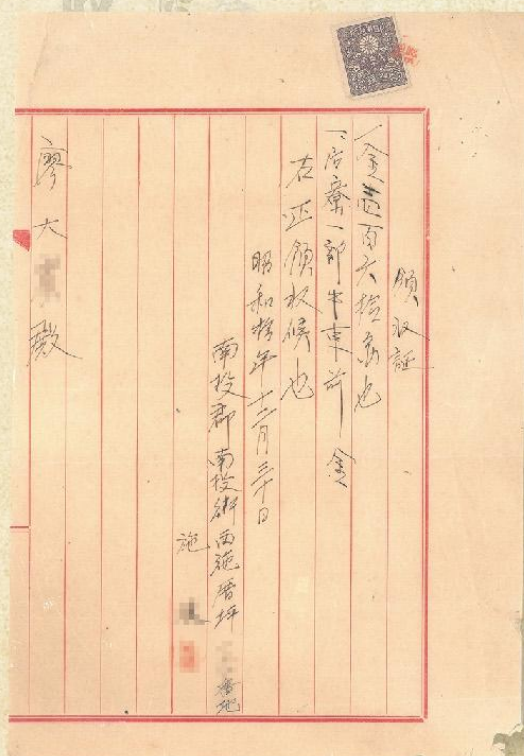 領収証
一金壱百六拾円也
一居藔一部牛車前金
右正領収候也
昭和拾年十二月三十日
南投郡南投街南施厝坪
番地
施
廖大
殿